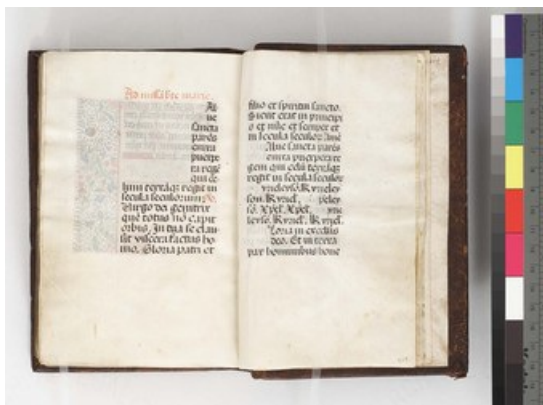 Ad missã bte marie.
A
ue
sancta
parẽs
enixa
puerpe
ra regẽ
qui ce
lum terrãq3 regit in
secula seculorum. Ps.
Virgo dei genitrix
quẽ totus nõ capit
orbis. In tua se clau
sit viscera factus ho
mo. Gloria patri et
filio et spiritui sancto.
Sicut erat in principi
o et nũc et semper et
in secula seculoꝝ amẽ
Aue sancta parẽs
enixa puerpera re
gem qui celũ terrãq3
regit in secula seculoꝝ
yrieleysõ. Kyrieley
son. Kyriel. peley
sõ. Xpel. Xpel. yrie
leysõ. Kyriel. Kyriel.
loria in excelsis
deo. Et in terra
pax hominibus bone